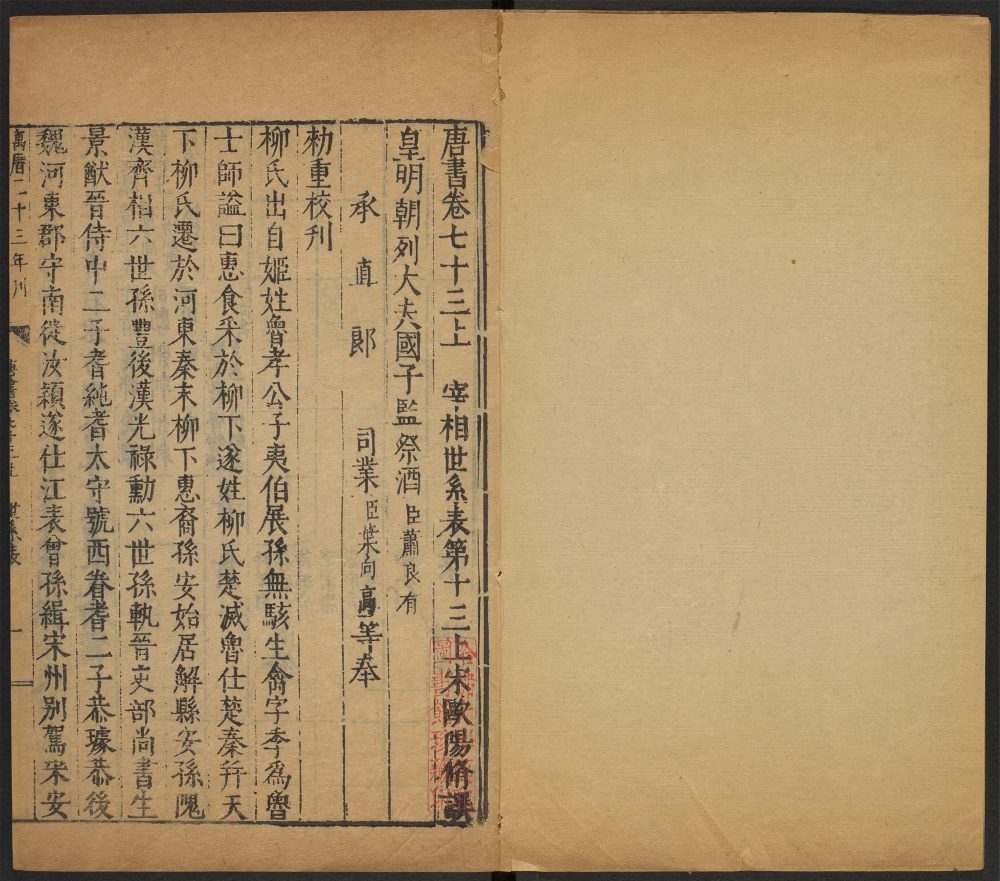 唐書卷七十三上 宰相世系表第十三上宋歐陽脩譔
皇明朝列大夫國子監祭酒臣蕭良有
承直郎 司業臣葉向高等奉
勑重校刋
柳氏出自姬姓魯孝公子夷伯展孫無駭生禽字季爲魯
士師謚曰惠食采於柳下遂姓柳氏楚滅魯仕楚秦幷天
下柳氏遷於河東秦末柳下惠裔孫安始居解縣安孫隗
漢齊相六世孫豐後漢光祿勳六世孫軌晉吏部尚書生
景猷晉侍中二子耆純耆太守號西眷耆二子恭璩恭後
魏河東郡守南徙汝潁遂仕江表曾孫緝宋州別駕宋安
萬曆二十三年刋